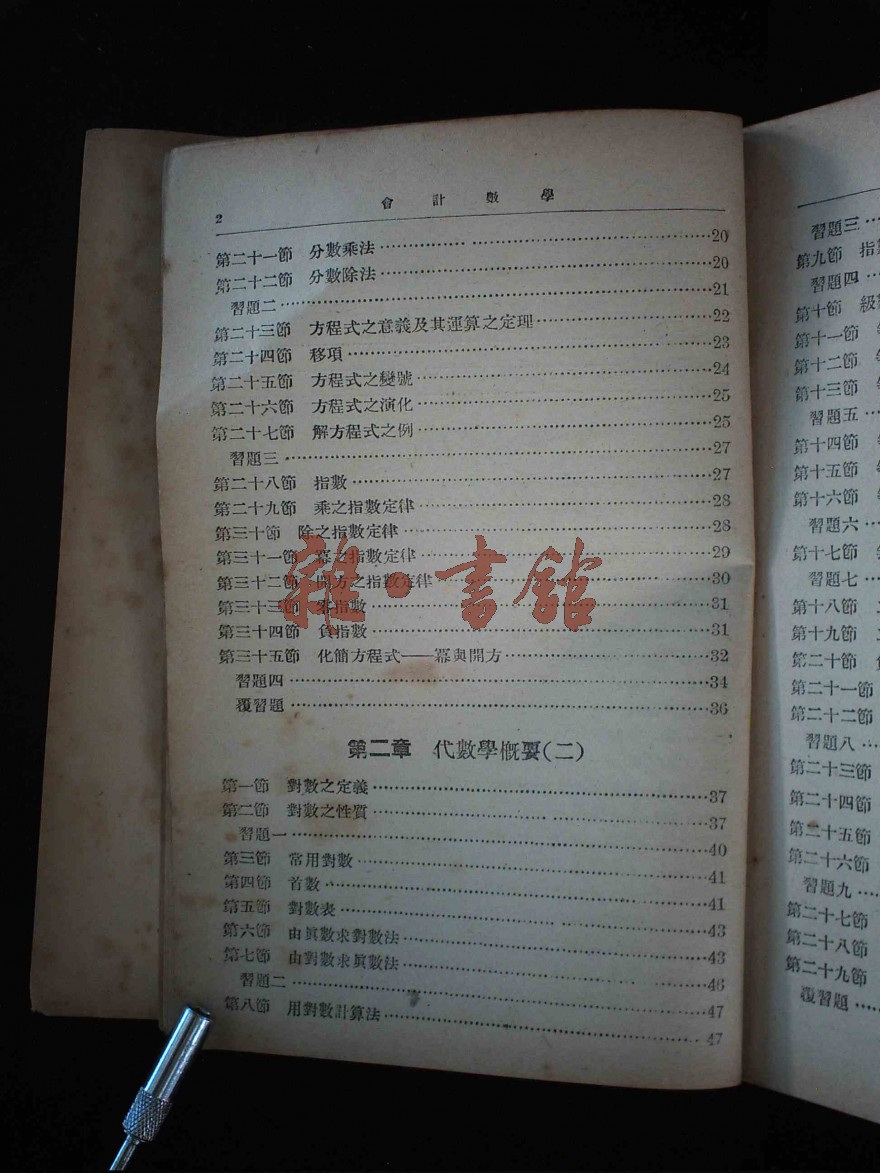 2 會計數學
第二十一節 分數乘法 20
第二十二節 分數除法 20
習題二 21
第二十三節 方程式之意義及其運算之定理 22
第二十四節 移項 23
第二十五節 方程式之變號 24
第二十六節 方程式之演化 25
第二十七節 解方程式之例 25
習題三 27
第二十八節 指數 27
第二十九節 乘之指數定律 28
第三十節 除之指數定律 28
第三十一節 冪之指數定律 29
第三十二節 開方之指數定律 30
第三十三節 零指數 31
第三十四節 負指數 31
第三十五節 化簡方程式——冪與開方 32
習題四 34
覆習題 36
第二章 代數學概要(二)
第一節 對數之定義 37
第二節 對數之性質 37
習題一 40
第三節 常用對數 41
第四節 首數 41
第五節 對數表 43
第六節 由眞數求對數法 43
第七節 由對數求眞數法 46
習題二 47
第八節 用對數計算法 47
雜·書館
習題三
第九節 指
習題四
第十節 級
第十一節
第十二節
第十三節
習題五
第十四節
第十五節
第十六節
習題六
第十七節
習題七
第十八節
第十九節
第二十節
第二十一節
第二十二節
習題八
第二十三節
第二十四節
第二十五節
第二十六節
習題九
第二十七節
第二十八節
第二十九節
覆習題